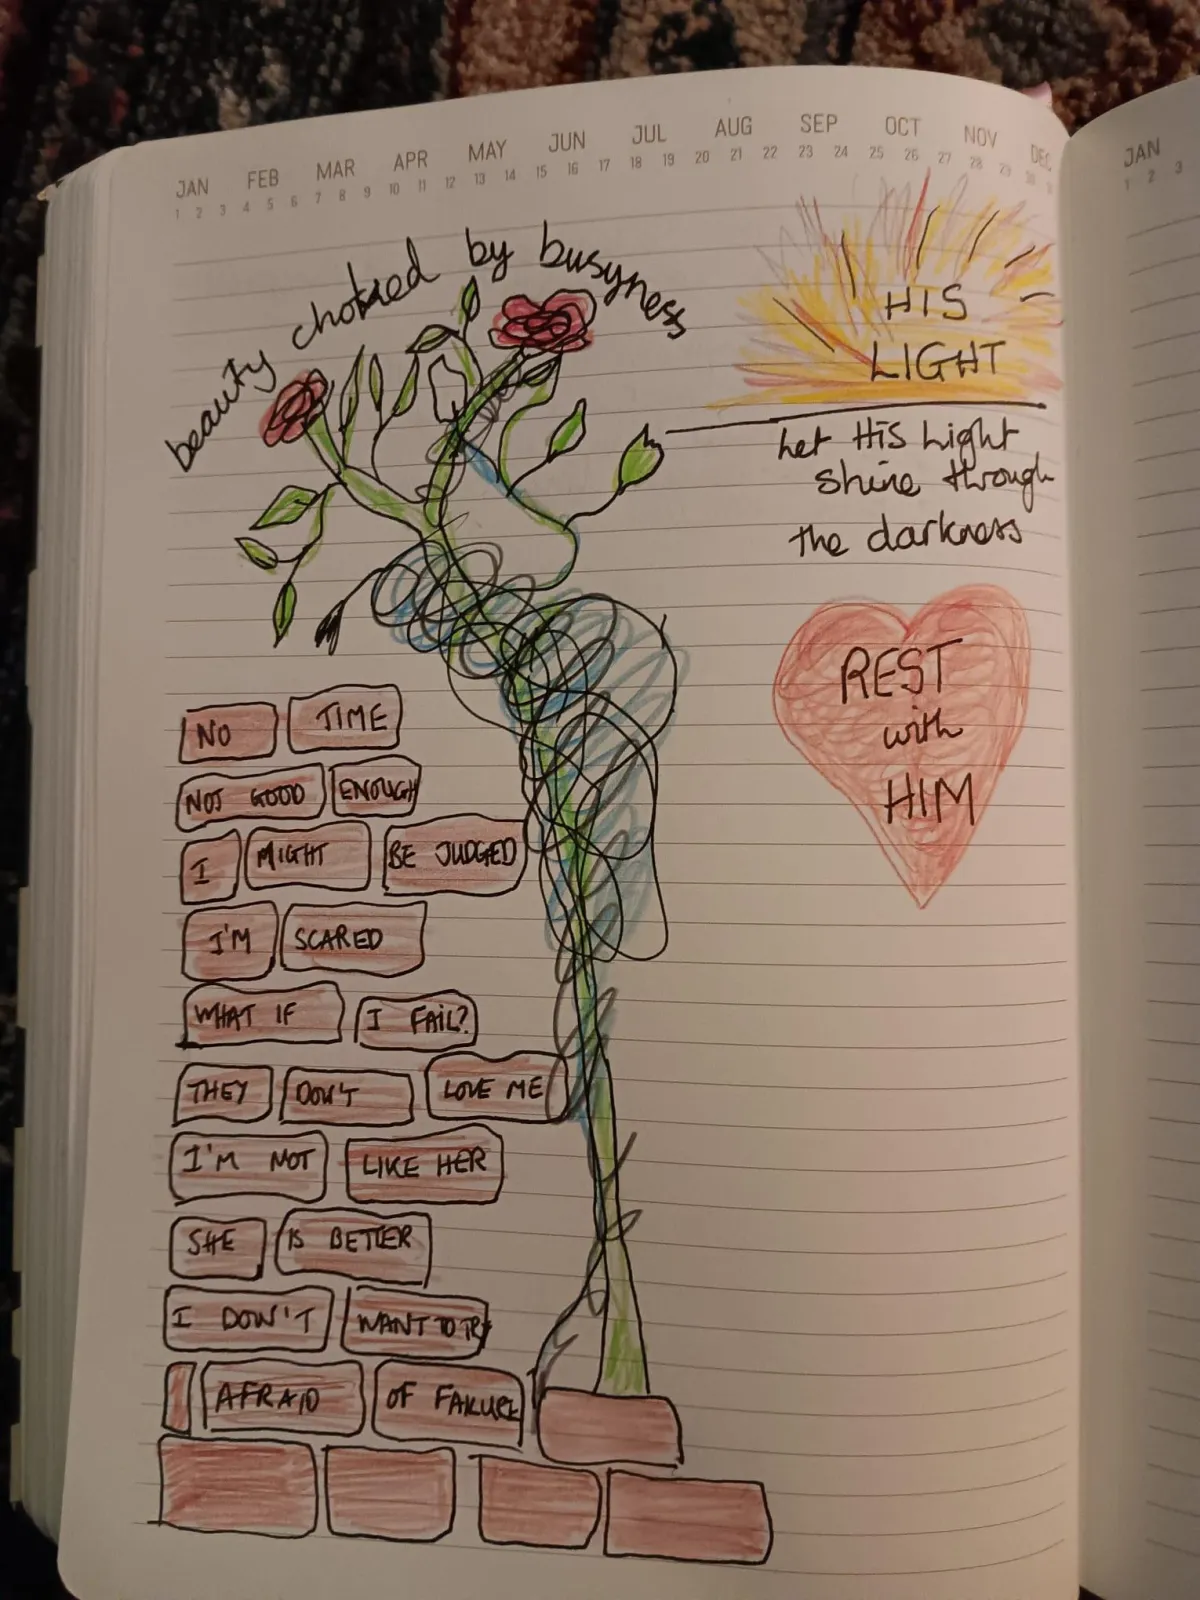 JAN FEB MAR APR MAY JUN JUL AUG SEP OCT NOV DEC
1 2 3 4 5 6 7 8 9 10 11 12 13 14 15 16 17 18 19 20 21 22 23 24 25 26 27 28 29 30
JAN
1 2 3
beauty choked by busyness
HIS
LIGHT
Let His Light
shine through
the darkness
REST
with
HIM
NO TIME
NOT GOOD ENOUGH
I MIGHT BE JUDGED
I'M SCARED
WHAT IF I FAIL?
THEY DON'T LOVE ME
I'M NOT LIKE HER
SHE IS BETTER
I DON'T WANT TO TRY
AFRAID OF FAILURE